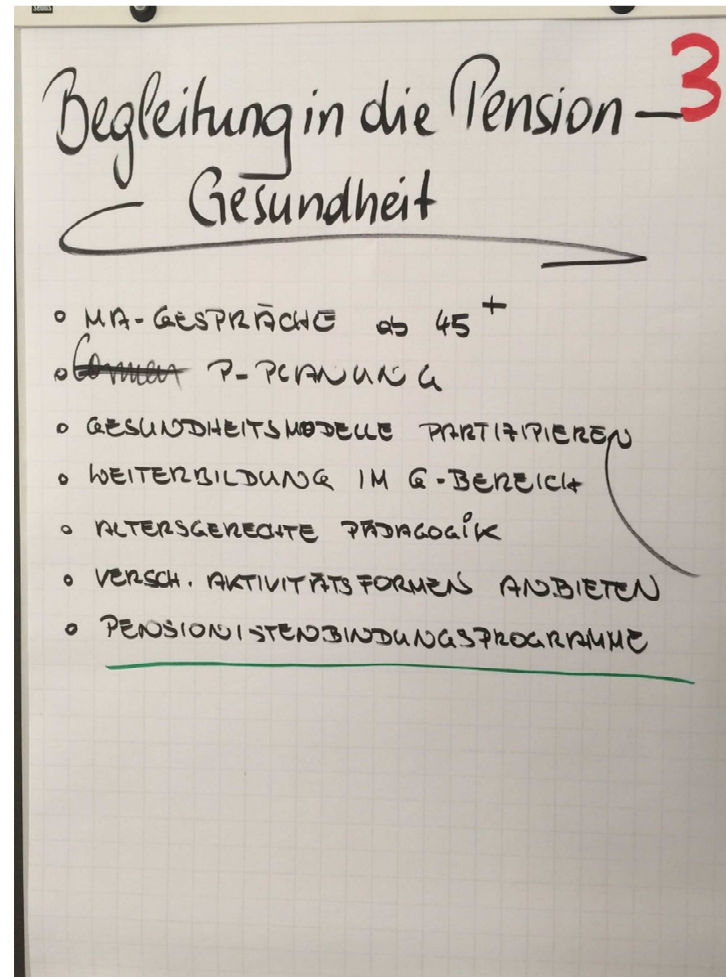 3
Begleitung in die Pension –
Gesundheit
• MA-GESPRÄCHE ab 45+
• P-PLANUNG
• GESUNDHEITSMODELLE PARTIZIPIEREN
• WEITERBILDUNG IM G-BEREICH
• ALTERSGERECHTE PÄDAGOGIK
• VERSCH. AKTIVITÄTSFORMEN ANBIETEN
• PENSIONISTENBINDUNGSPROGRAMME